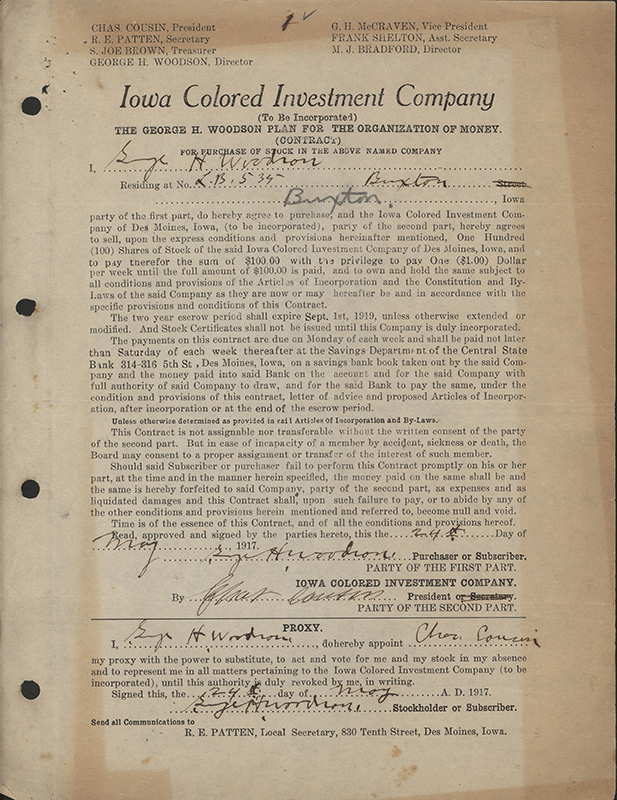 CHAS. COUSIN, President
R. E. PATTEN, Secretary
S. JOE BROWN, Treasurer
GEORGE H. WOODSON, Director
G. H. McCRAVEN, Vice President
FRANK SHELTON, Asst. Secretary
M. J. BRADFORD, Director
Iowa Colored Investment Company
(To Be Incorporated)
THE GEORGE H. WOODSON PLAN FOR THE ORGANIZATION OF MONEY.
(CONTRACT)
FOR PURCHASE OF STOCK IN THE ABOVE NAMED COMPANY
I, Geo. H Woodson
Residing at No. L.B. 535 Buxton Street
Buxton, Iowa
party of the first part, do hereby agree to purchase, and the Iowa Colored Investment Com-
pany of Des Moines, Iowa, (to be incorporated), party of the second part, hereby agrees
to sell, upon the express conditions and provisions hereinafter mentioned, One Hundred
(100) Shares of Stock of the said Iowa Colored Investment Company of Des Moines, Iowa, and
to pay therefor the sum of $100.00 with the privilege to pay One ($1.00) Dollar
per week until the full amount of $100.00 is paid, and to own and hold the same subject to
all conditions and provisions of the Articles of Incorporation and the Constitution and By-
Laws of the said Company as they are now or may hereafter be and in accordance with the
specific provisions and conditions of this Contract.
The two year escrow period shall expire Sept. 1st, 1919, unless otherwise extended or
modified. And Stock Certificates shall not be issued until this Company is duly incorporated.
The payments on this contract are due on Monday of each week and shall be paid not later
than Saturday of each week thereafter at the Savings Department of the Central State
Bank 314-316 5th St., Des Moines, Iowa, on a savings bank book taken out by the said Com-
pany and the money paid into said Bank on the account and for the said Company with
full authority of said Company to draw, and for the said Bank to pay the same, under the
condition and provisions of this contract, letter of advice and proposed Articles of Incorpor-
ation, after incorporation or at the end of the escrow period.
Unless otherwise determined as provided in said Articles of Incorporation and By-Laws.
This Contract is not assignable nor transferable without the written consent of the party
of the second part. But in case of incapacity of a member by accident, sickness or death, the
Board may consent to a proper assignment or transfer of the interest of such member.
Should said Subscriber or purchaser fail to perform this Contract promptly on his or her
part, at the time and in the manner herein specified, the money paid on the same shall be and
the same is hereby forfeited to said Company, party of the second part, as expenses and as
liquidated damages and this Contract shall, upon such failure to pay, or to abide by any of
the other conditions and provisions herein mentioned and referred to, become null and void.
Time is of the essence of this Contract, and of all the conditions and provisions hereof.
Read, approved and signed by the parties hereto, this the 24th Day of
May, 1917.
Geo. H. Woodson, Purchaser or Subscriber.
PARTY OF THE FIRST PART.
IOWA COLORED INVESTMENT COMPANY.
By Chas Cousin President or Secretary.
PARTY OF THE SECOND PART.
PROXY.
I, Geo. H Woodson, do hereby appoint Chas. Cousin
my proxy with the power to substitute, to act and vote for me and my stock in my absence
and to represent me in all matters pertaining to the Iowa Colored Investment Company (to be
incorporated), until this authority is duly revoked by me, in writing.
Signed this, the 24th day of May A. D. 1917.
Geo. H. Woodson, Stockholder or Subscriber.
Send all Communications to
R. E. PATTEN, Local Secretary, 830 Tenth Street, Des Moines, Iowa.